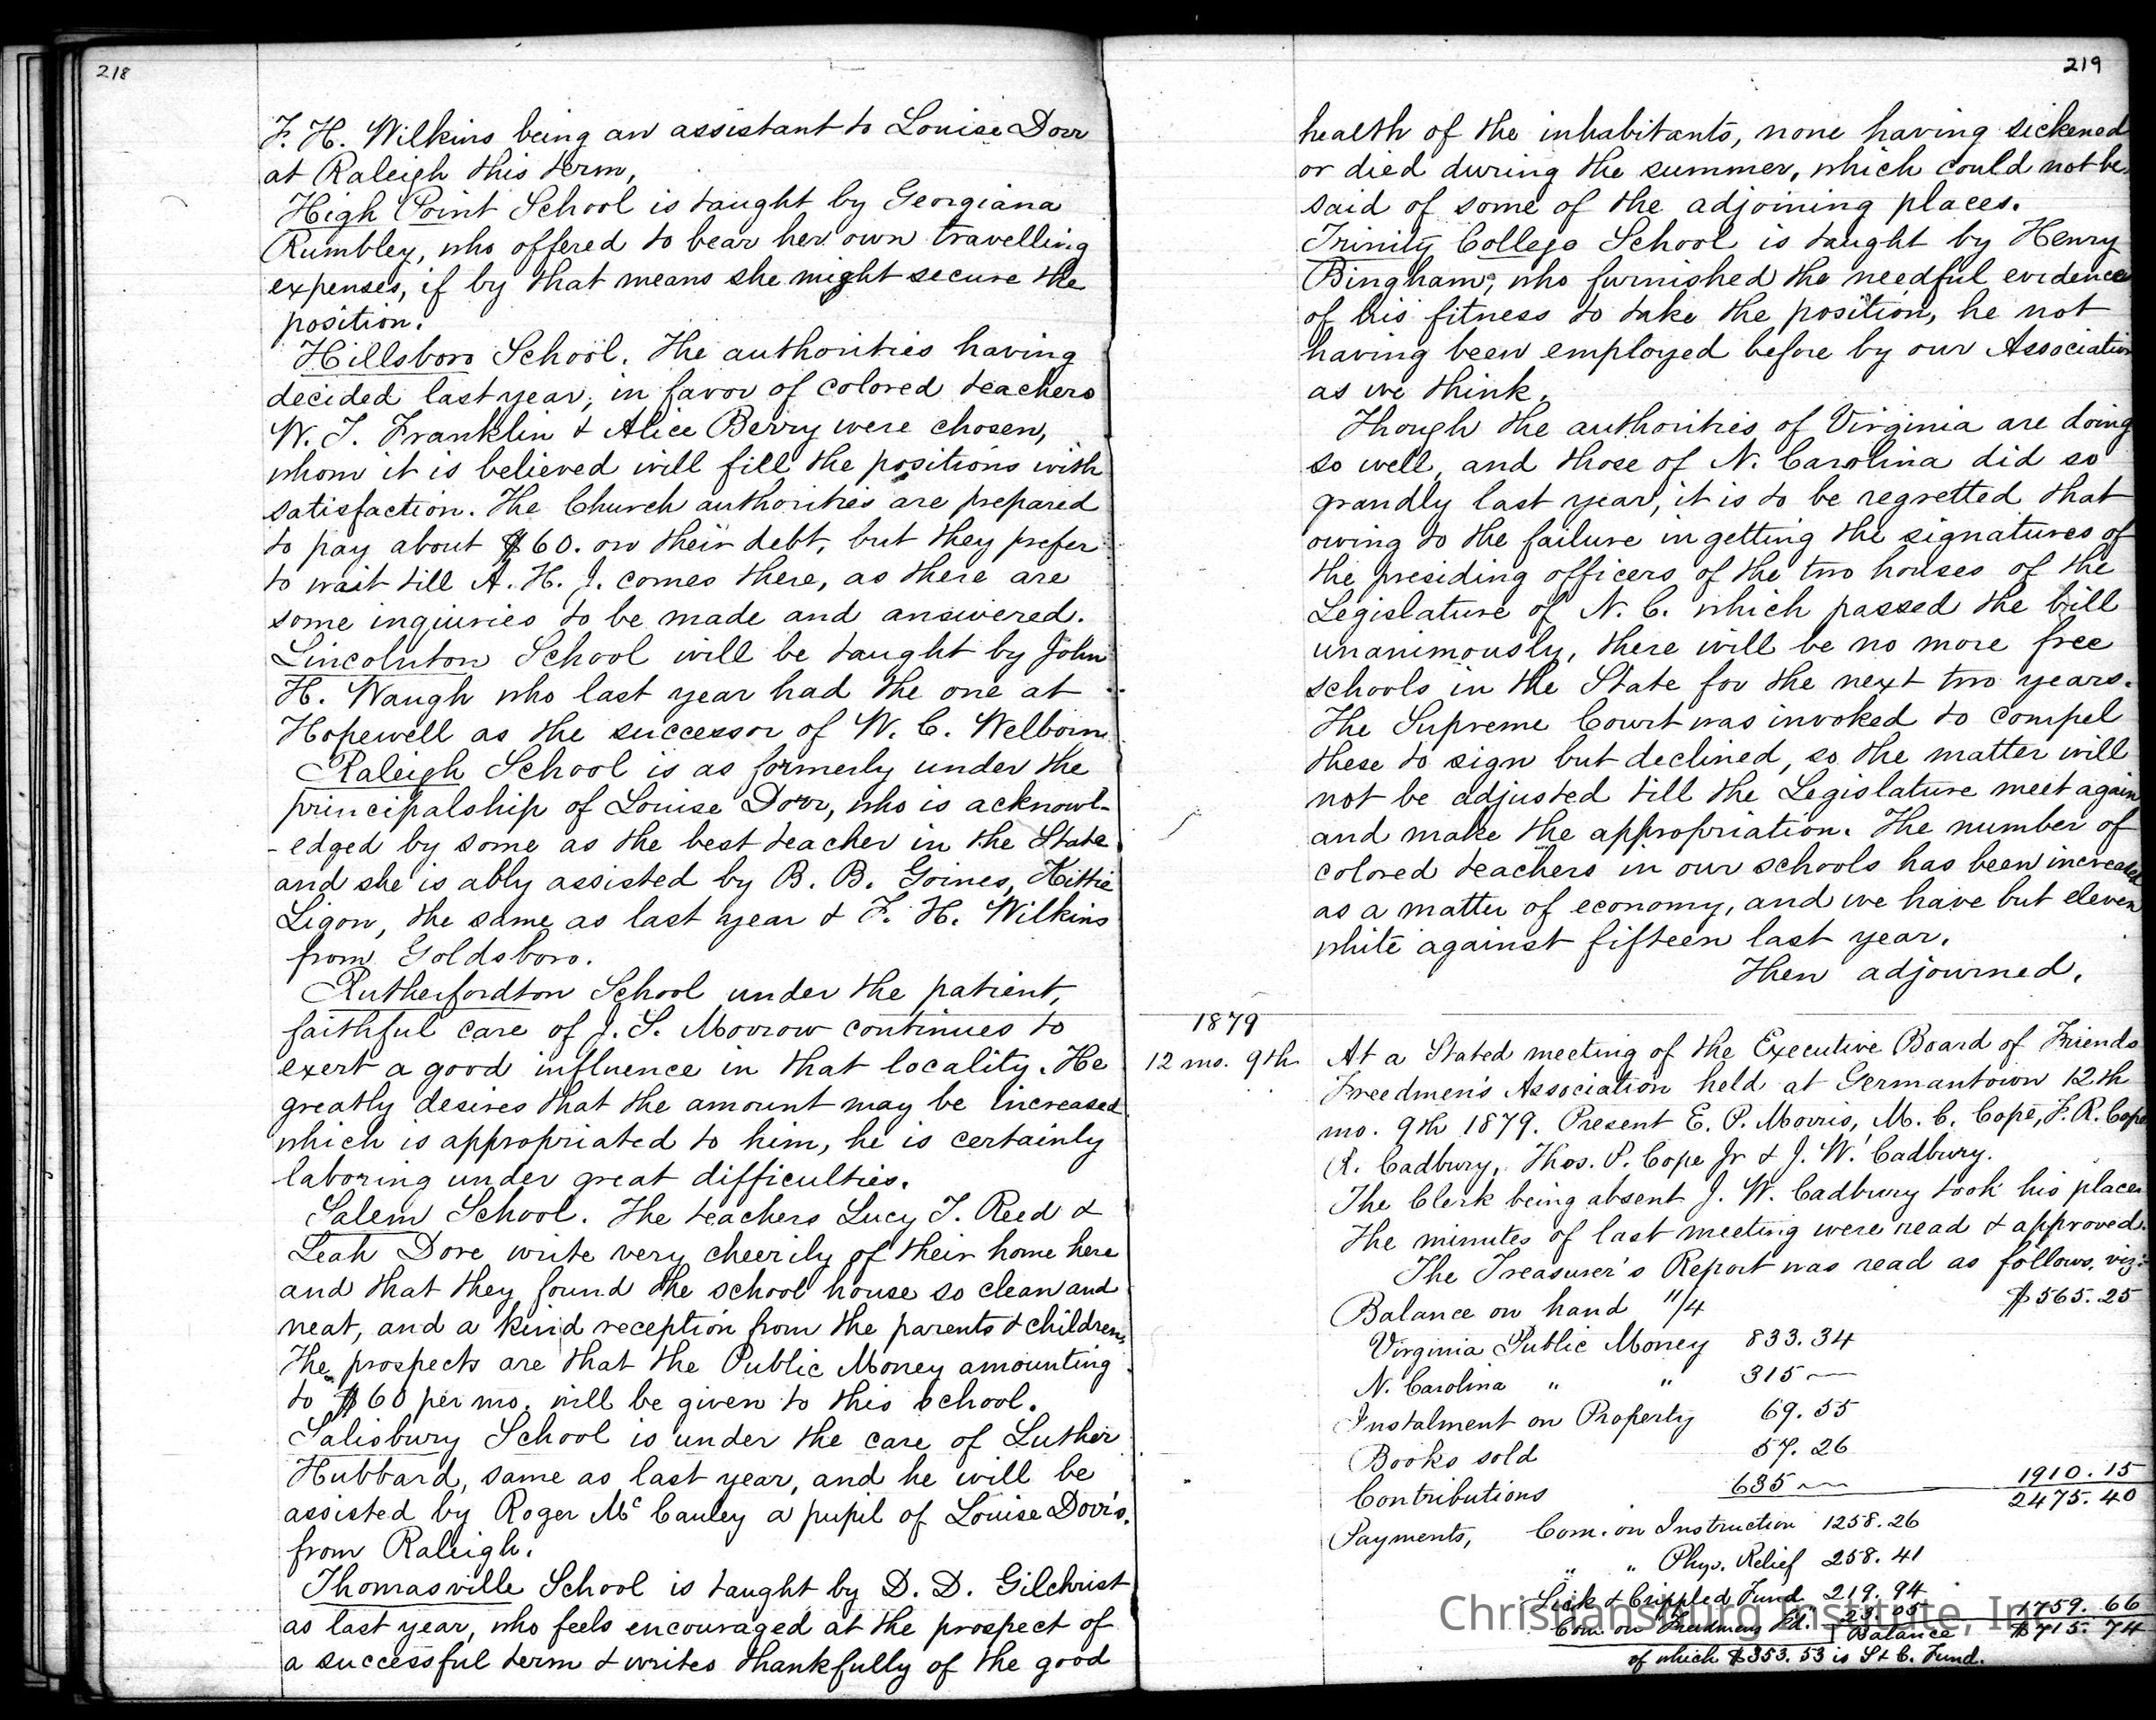 218
F. H. Wilkins being an assistant to Louise Dorr
at Raleigh this term,
High Point School is taught by Georgiana
Rumbley, who offered to bear her own travelling
expenses, if by that means she might secure the
position.
Hillsboro School. The authorities having
decided last year, in favor of colored teachers
W. T. Franklin & Alice Berry were chosen,
whom it is believed will fill the positions with
satisfaction. The Church authorities are prepared
to pay about $60. on their debt, but they prefer
to wait till A. H. J. comes there, as there are
some inquiries to be made and answered.
Lincolnton School will be taught by John
H. Waugh who last year had the one at
Hopewell as the successor of W. C. Welborn.
Raleigh School is as formerly under the
principalship of Louise Dorr, who is acknowl-
-edged by some as the best teacher in the State
and she is ably assisted by B. B. Goines, Kittie
Ligon, the same as last year & F. H. Wilkins
from Goldsboro.
Rutherfordton School under the patient,
faithful care of J. S. Morrow continues to
exert a good influence in that locality. He
greatly desires that the amount may be increased
which is appropriated to him, he is certainly
laboring under great difficulties.
Salem School. The teachers Lucy T. Reed &
Leah Dore write very cheerily of their home here
and that they found the school house so clean and
neat, and a kind reception from the parents & children,
The prospects are that the Public Money amounting
to $60 per mo. will be given to this school.
Salisbury School is under the care of Luther
Hubbard, same as last year, and he will be
assisted by Roger McCauley a pupil of Louise Dorr's.
from Raleigh.
Thomasville School is taught by D. D. Gilchrist
as last year, who feels encouraged at the prospect of
a successful term & writes thankfully of the good
219
health of the inhabitants, none having sickened
or died during the summer, which could not be
said of some of the adjoining places.
Trinity College School is taught by Henry
Bingham, who furnished the needful evidence
of his fitness to take the position, he not
having been employed before by our Association
as we think.
Though the authorities of Virginia are doing
so well, and those of N. Carolina did so
grandly last year, it is to be regretted that
owing to the failure in getting the signatures of
the presiding officers of the two houses of the
Legislature of N. C. which passed the bill
unanimously, there will be no more free
schools in the State for the next two years.
The Supreme Court was invoked to compel
these to sign but declined, so the matter will
not be adjusted till the Legislature meet again
and make the appropriation. The number of
colored teachers in our schools has been increased
as a matter of economy, and we have but eleven
white against fifteen last year.
Then adjourned.
1879
12 mo. 9th At a Stated meeting of the Executive Board of Friends
Freedmen's Association held at Germantown 12th
mo. 9th 1879. Present E. P. Morris, M. C. Cope, F. R. Cope
R. Cadbury, Thos. P. Cope Jr & J. W. Cadbury.
The Clerk being absent J. W. Cadbury took his place.
The minutes of last meeting were read & approved.
The Treasurer's Report was read as follows, viz:
Balance on hand 11/4 $565.25
Virginia Public Money 833.34
N. Carolina " " 315 —
Instalment on Property 69.55
Books sold 57.26
Contributions 635 — 1910.15
2475.40
Payments, Com. on Instruction 1258.26
" " Phys. Relief 258.41
Sick & Crippled Fund 219.94
Com. on Freedmens Fd. 23.05 1759.66
Balance $715.74
of which $353.53 is S & C. Fund.
Christiansburg Institute, Inc